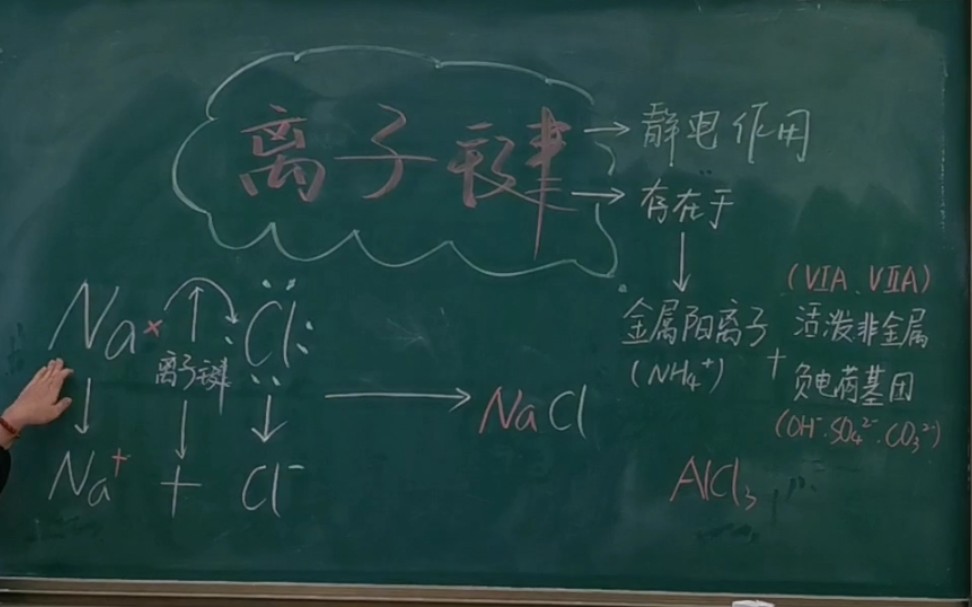 离子键
→ 静电作用
→ 存在于
(VIA、VIIA)
金属阳离子 活泼非金属
(NH₄⁺) + 负电荷基团
(OH⁻·SO₄²⁻·CO₃²⁻)
AlCl₃
Na× Cl
离子键
Na⁺ + Cl⁻
→ NaCl